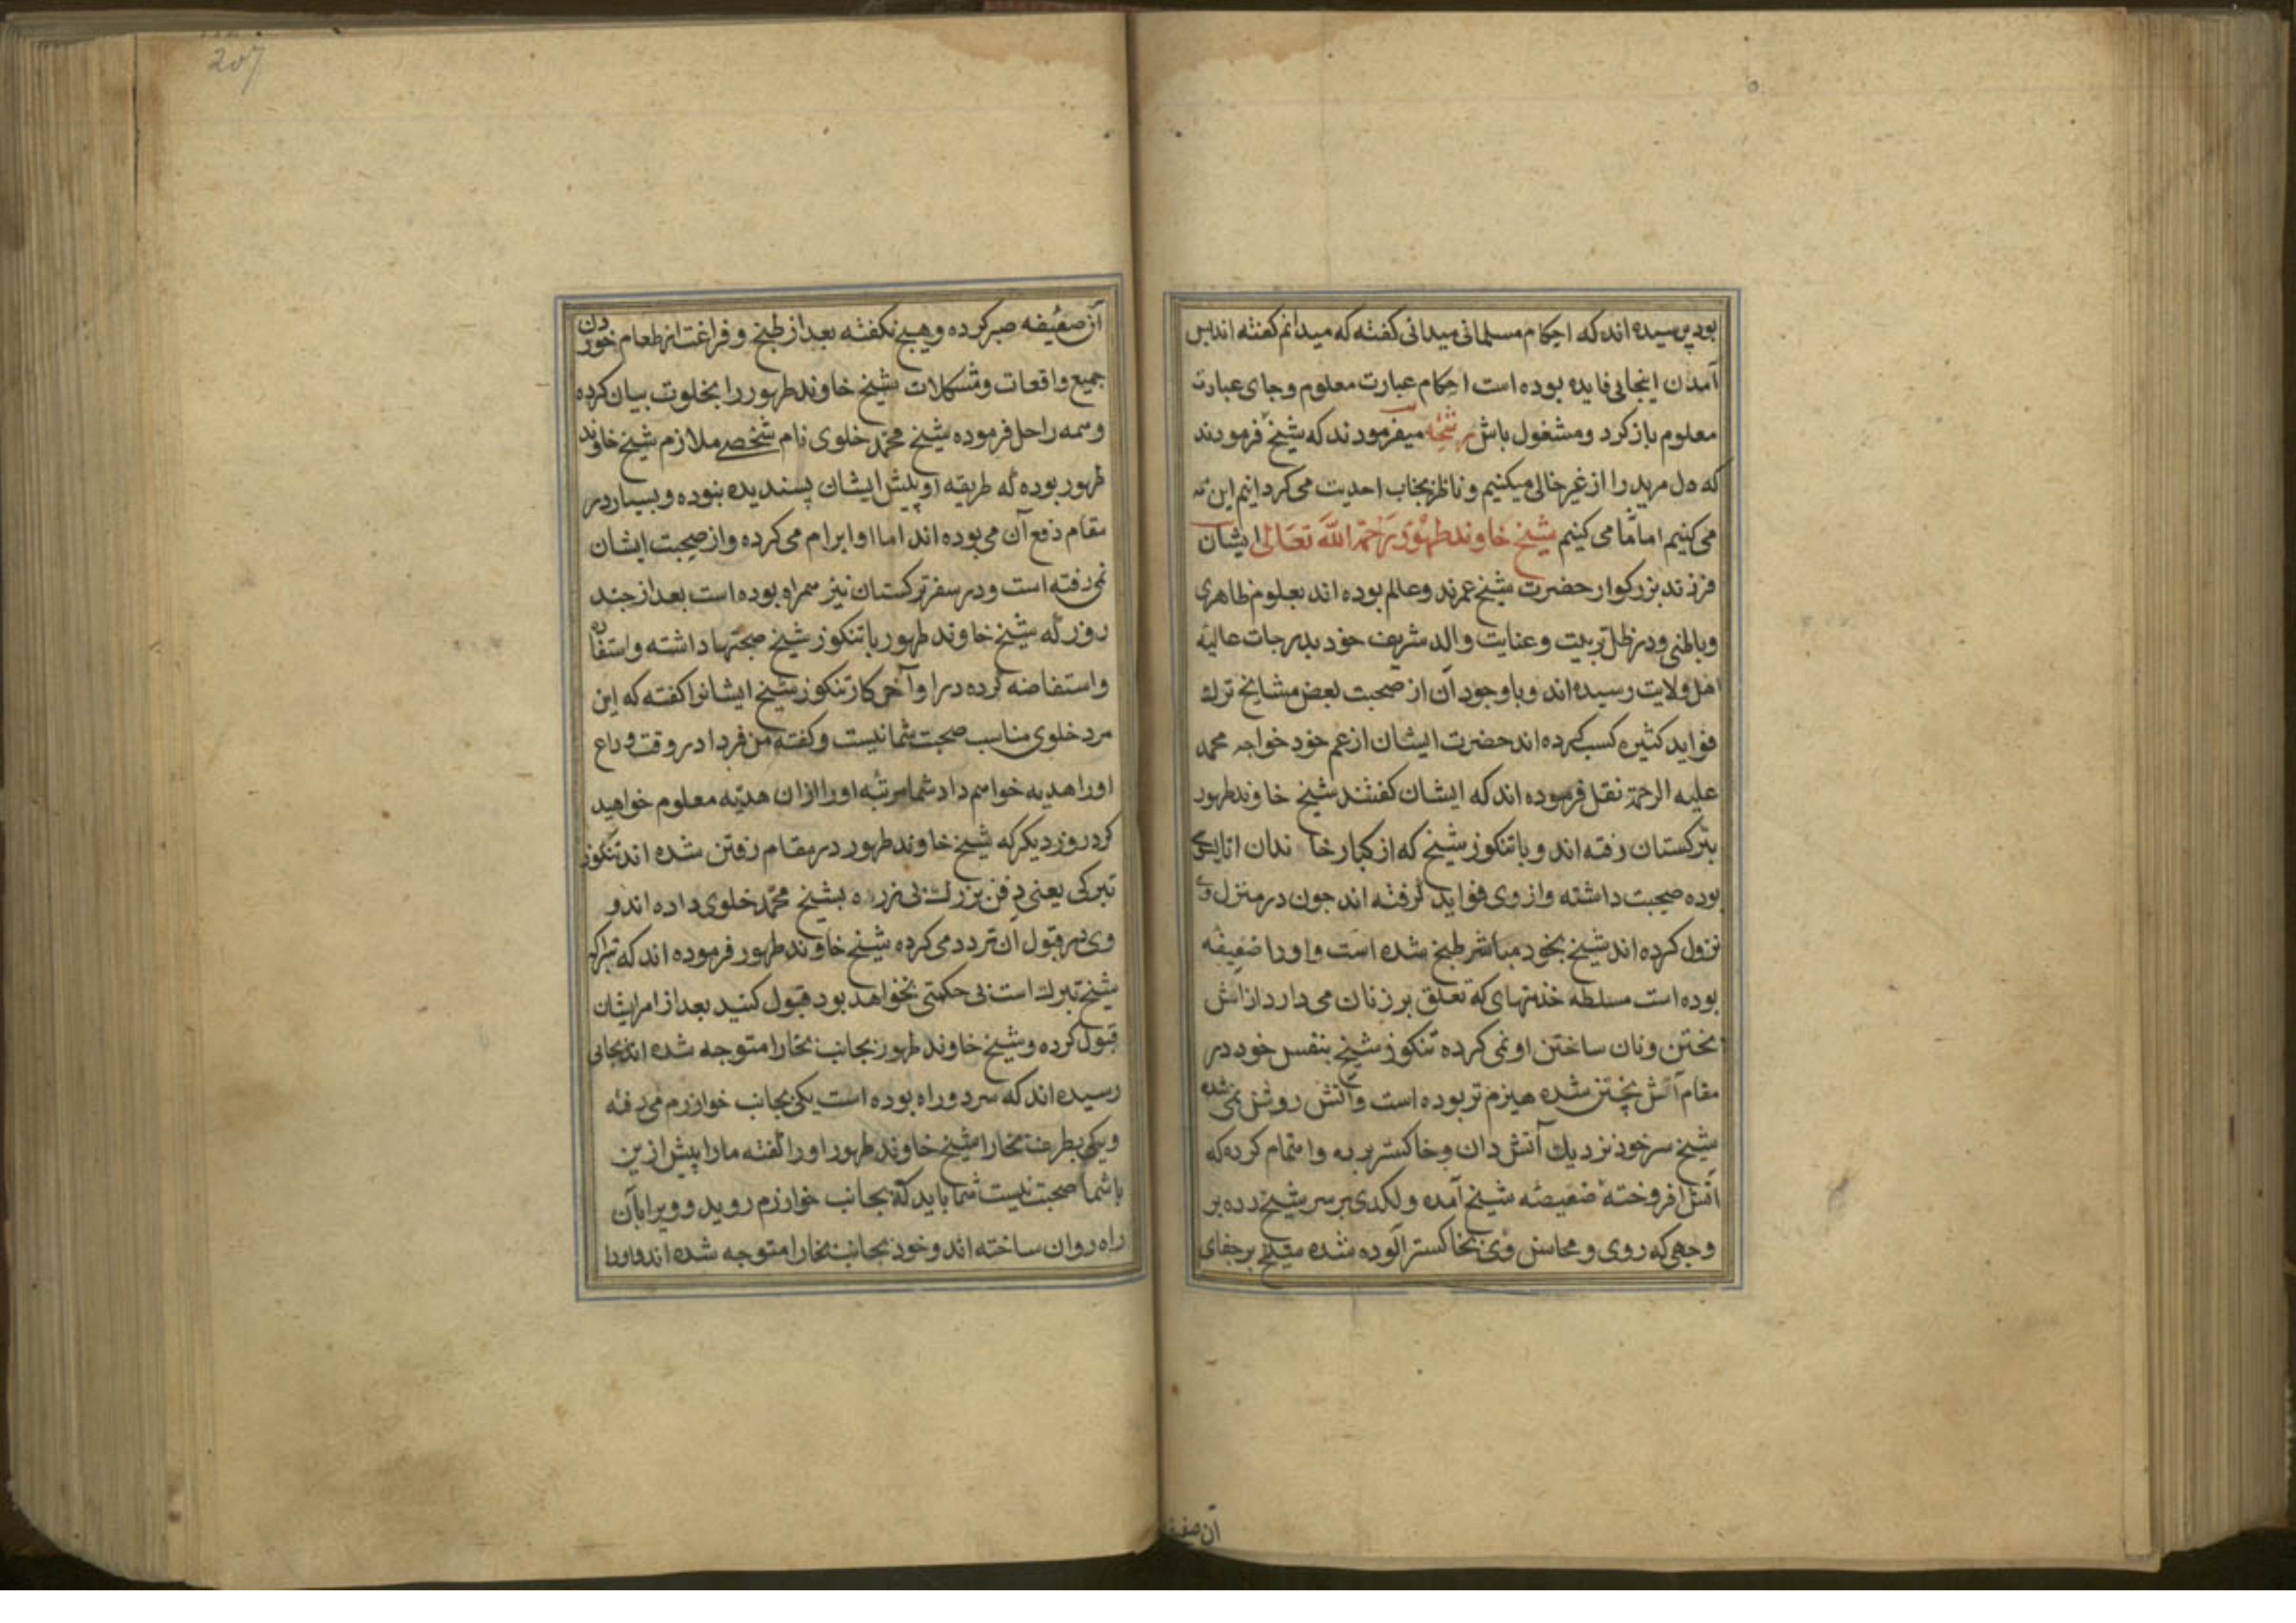 بود پرسیده اند که احکام مسلمانی میدانی کفته که میدانم کفته اند بس
آمدن اینجا بی فایده بوده است احکام عبارت معلوم و جای عبارت
معلوم باز کرد و مشغول باش رشحه میفرمودند که شیخ فرمودند
که دل مرید را از غیر خالی میکنیم و ناظر بجناب احدیت می کردانیم این نه
می کنیم اما ما می کنیم شیخ خاوند طهور رحمة الله تعالی ایشان
فرزند بزرکوار حضرت شیخ عمرند و عالم بوده اند بعلوم ظاهری
و باطنی و در ظل تربیت و عنایت والد شریف خود بدرجات عالیه
اهل ولایت رسیده اند و با وجود آن از صحبت بعض مشایخ ترک
فواید کثیره کسب کرده اند حضرت ایشان از عم خود خواجه محمد
علیه الرحمة نقل فرموده اند که ایشان کفتند شیخ خاوند طهور
بترکستان رفته اند و با تنکوز شیخ که از کبار خا ندان اتا
بوده صحبت داشته و از وی فواید کرفته اند جون در منزل وی
نزول کرده اند شیخ بخود مباشر طبخ شده است و اورا ضعیفه
بوده است مسلطه خدمتهای که تعلق بر زنان می دارد از آش
بختن و نان ساختن او نمی کرده تنکوز شیخ بنفس خود در
مقام آتش پختن شده هیزم تر بوده است و آتش روشن نمی شده
شیخ سر خود نزدیک آتش دان و خاکستر برده و اهتمام کرده که
آتش افروخته ضعیفه شیخ آمده و لکدی بر سر شیخ زده بر
وجهی که روی و محاسن وی بخاکستر آلوده شده شیخ بر جفای
آن ضعیفه
207
آن ضعیفه صبر کرده و هیچ نکفته بعد از طبخ و فراغت از طعام خوردن
جمیع واقعات و مشکلات شیخ خاوند طهور را بخلوت بیان کرده
و همه را حل فرموده شیخ محمد خلوی نام شخصی ملازم شیخ خاوند
طهور بوده که طریقه او پیش ایشان پسندیده نبوده و بسیار در
مقام دفع آن می بوده اند اما او ابرام می کرده و از صحبت ایشان
نمی رفته است و در سفر ترکستان نیز همراه بوده است بعد از جند
روز که شیخ خاوند طهور با تنکوز شیخ صحبتها داشته و استفاده
و استفاضه کرده در اواخر کار تنکوز شیخ ایشانرا کفته که این
مرد خلوی مناسب صحبت شما نیست و کفته من فردا در وقت وداع
اورا هدیه خواهم داد شما مرتبه اورا از ان هدیه معلوم خواهید
کرد روز دیکر که شیخ خاوند طهور در مقام رفتن شده اند تنکوز
تبرکی یعنی دفن بزرک بشیخ محمد خلوی داده اند و
وی در قبول آن تردد می کرده شیخ خاوند طهور فرموده اند که تبرک
شیخ تبرک است بی حکمتی نخواهد بود قبول کنید بعد از امر ایشان
قبول کرده و شیخ خاوند طهور بجانب بخارا متوجه شده اند بجایی
رسیده اند که سر دو راه بوده است یکی بجانب خوارزم می رفته
و یکی بطرف بخارا شیخ خاوند طهور اورا کفته مارا پیش ازین
با شما صحبت نیست شما باید که بجانب خوارزم روید و ویرا بآن
راه روان ساخته اند و خود بجانب بخارا متوجه شده اند و اورا